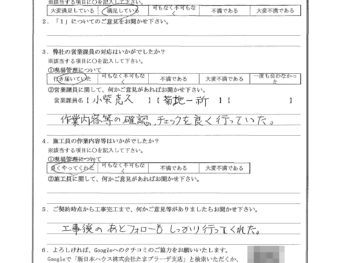 ※該当する項目に○を記入して下さい。
大変満足している 満足している 可もなく不可もなく 不満である 大変不満である
2．「1」についてのご意見をお聞かせ下さい。
3．弊社の営業課員の対応はいかがでしたか？
※該当する項目に○を記入して下さい。
①現場管理について
行き届いていた 可もなく不可もなく 不満である 大変不満である 一度も来なかった
②営業課員に関して、何かご意見があればお聞かせ下さい。
営業課員名【 小柴亮久 】【 菊地一新 】
作業内容等の確認。チェックを良く行っていた。
4．施工員の作業内容等はいかがでしたか？
※該当する項目に○を記入して下さい。
①現場管理について
良くやってくれた 可もなく不可もなく 不満である 大変不満である
②施工員に関して、何かご意見があればお聞かせ下さい。
5．ご契約時点から工事完工まで、何かご意見等がありましたらお聞かせ下さい。
工事後のあとフォローもしっかり行ってくれた。
6．よろしければ、Googleへのクチコミのご協力をお願いいたします。
Googleで「飯日本ハウス株式会社たまプラーザ支店」と検索いただくか、